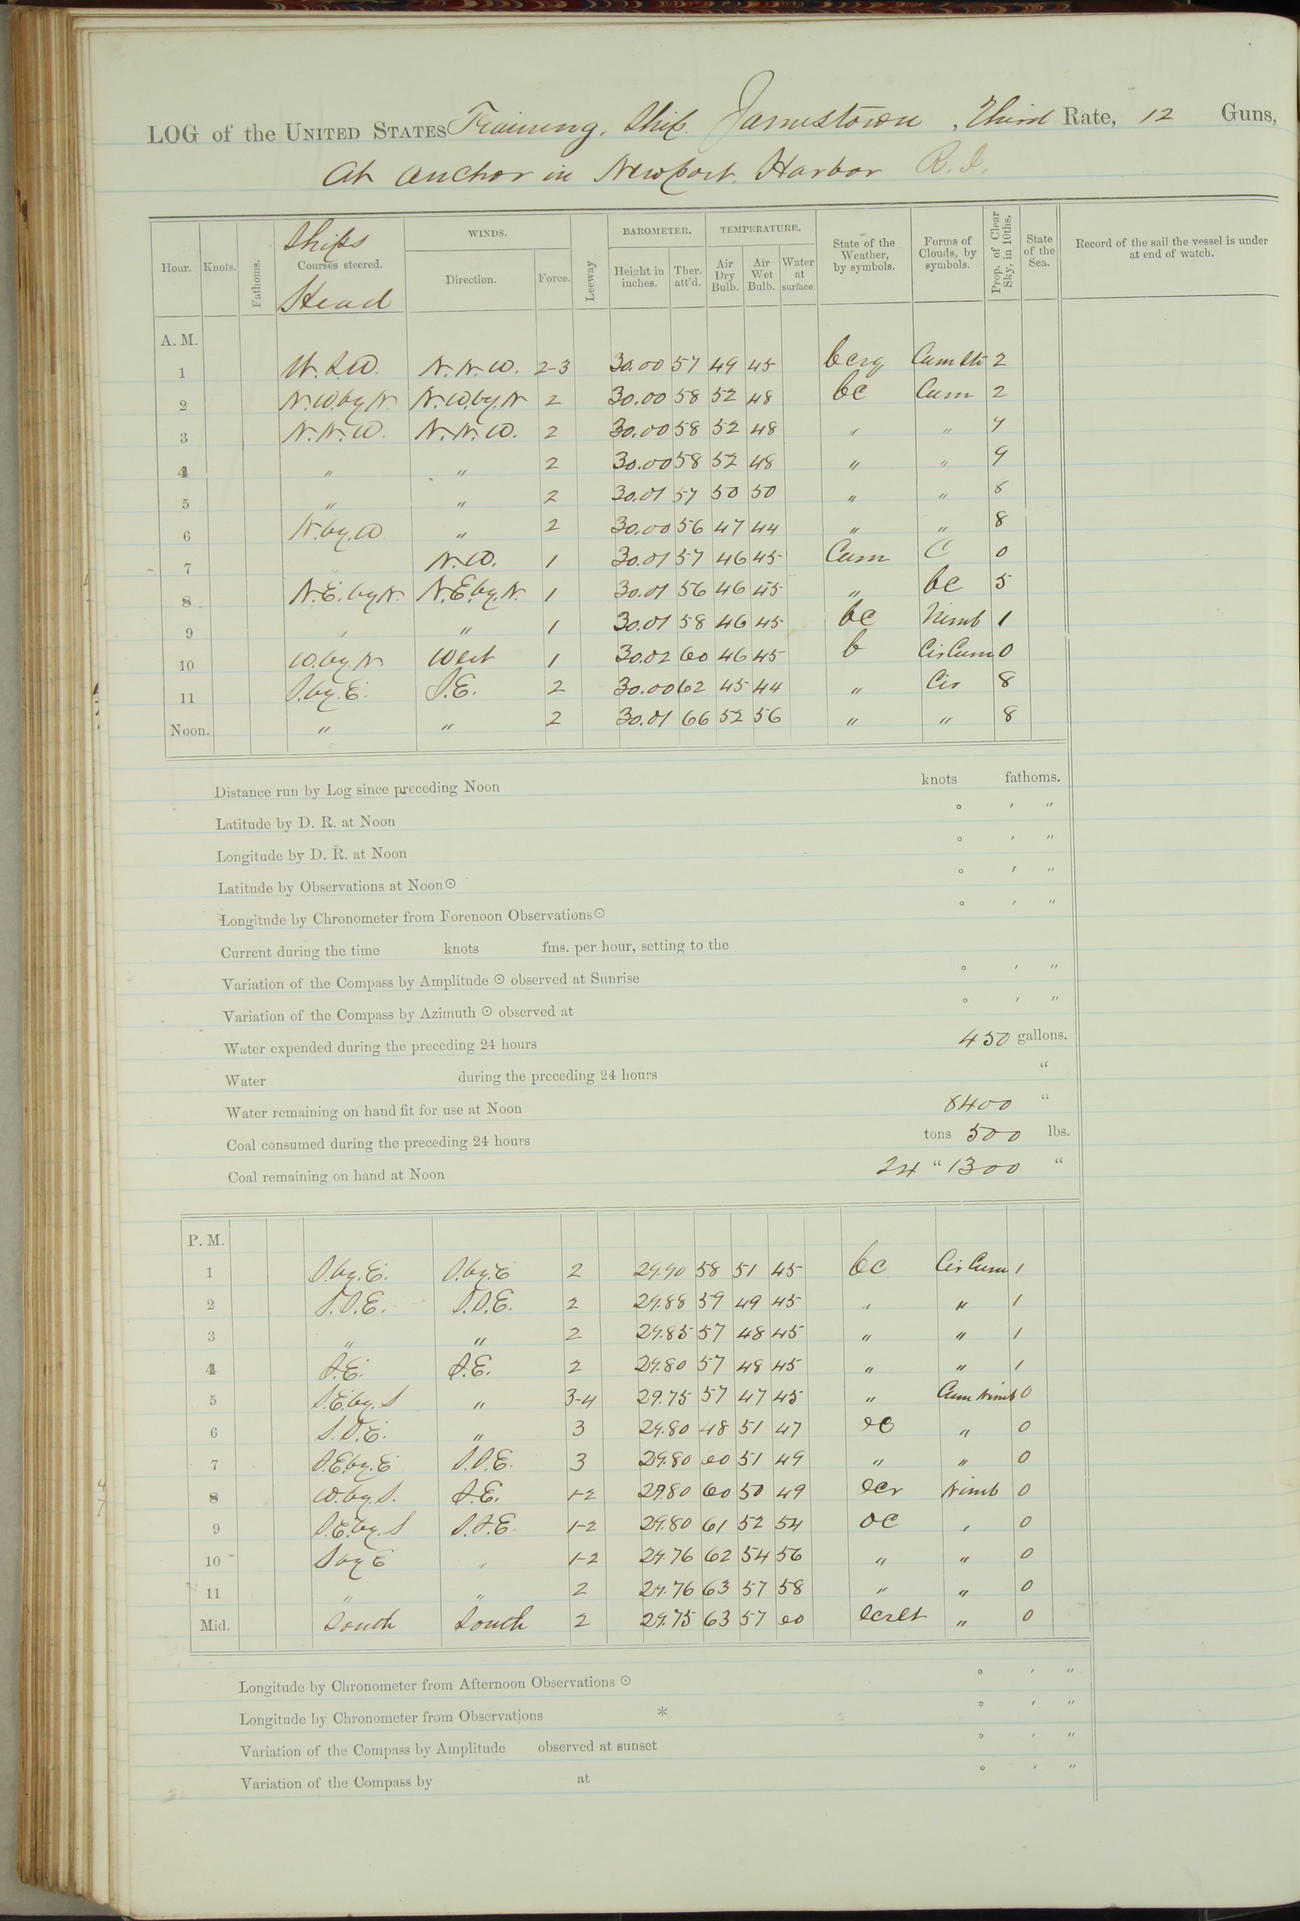 LOG of the UNITED STATES Training Ship Jamestown, Third Rate, 12 Guns,
At anchor in Newport Harbor R.I.
Hour. Knots. Fathoms. Ships Courses steered. Head WINDS. Direction. Force. Leeway BAROMETER. Height in inches. Ther. att'd. TEMPERATURE. Air Dry Bulb. Air Wet Bulb. Water at surface. State of the Weather, by symbols. Forms of Clouds, by symbols. Prop. of Clear Sky, in 10ths. State of the Sea. Record of the sail the vessel is under at end of watch.
A. M.
1 N.N.W. 2-3 30.00 57 49 45 2
2 N.W.by.N. N.W.by.N 2 30.00 58 52 48 bc Cum 2
3 N.N.W. N.N.W. 2 30.00 58 52 48 " "
4 " " 2 30.00 58 52 48 " " 9
5 " " 2 30.01 57 50 50 " " 8
6 N.by.W. " 2 30.00 56 47 44 " " 8
7 N.W. 1 30.01 57 46 45 Cum C 0
8 N.E.by N. N.E.by.N. 1 30.01 56 46 45 " bc 5
9 " " 1 30.01 58 46 45 bc Nimb 1
10 W.by.N West 1 30.02 60 46 45 b Cir Cum 0
11 S.by.E. S.E. 2 30.00 62 45 44 " Cir 8
Noon. " " 2 30.01 66 52 56 " " 8
Distance run by Log since preceding Noon knots fathoms.
Latitude by D. R. at Noon ° ′ ″
Longitude by D. R. at Noon ° ′ ″
Latitude by Observations at Noon ☉ ° ′ ″
Longitude by Chronometer from Forenoon Observations ☉ ° ′ ″
Current during the time knots fms. per hour, setting to the
Variation of the Compass by Amplitude ☉ observed at Sunrise ° ′ ″
Variation of the Compass by Azimuth ☉ observed at ° ′ ″
Water expended during the preceding 24 hours 450 gallons.
Water during the preceding 24 hours "
Water remaining on hand fit for use at Noon 8400 "
Coal consumed during the preceding 24 hours tons 500 lbs.
Coal remaining on hand at Noon 24 " 1300 "
P. M.
1 S.by.E. S.by.E 2 29.90 58 51 45 bc Cir Cum 1
2 S.S.E. S.S.E. 2 29.88 59 49 45 " " 1
3 " " 2 29.85 57 48 45 " " 1
4 S.E. S.E. 2 29.80 57 48 45 " " 1
5 S.E.by.S " 3-4 29.75 57 47 45 " Cum Nimb 0
6 S.S.E. " 3 29.80 48 51 47 oc " 0
7 S.E.by.E S.S.E. 3 29.80 60 51 49 " " 0
8 W.by.S. S.E. 1-2 29.80 60 50 49 ocr Nimb 0
9 S.E.by.S S.S.E. 1-2 29.80 61 52 54 oc " 0
10 S by E " 1-2 29.76 62 54 56 " " 0
11 " " 2 29.76 63 57 58 " " 0
Mid. South South 2 29.75 63 57 60 " 0
Longitude by Chronometer from Afternoon Observations ☉ ° ′ ″
Longitude by Chronometer from Observations * ° ′ ″
Variation of the Compass by Amplitude observed at sunset ° ′ ″
Variation of the Compass by at ° ′ ″